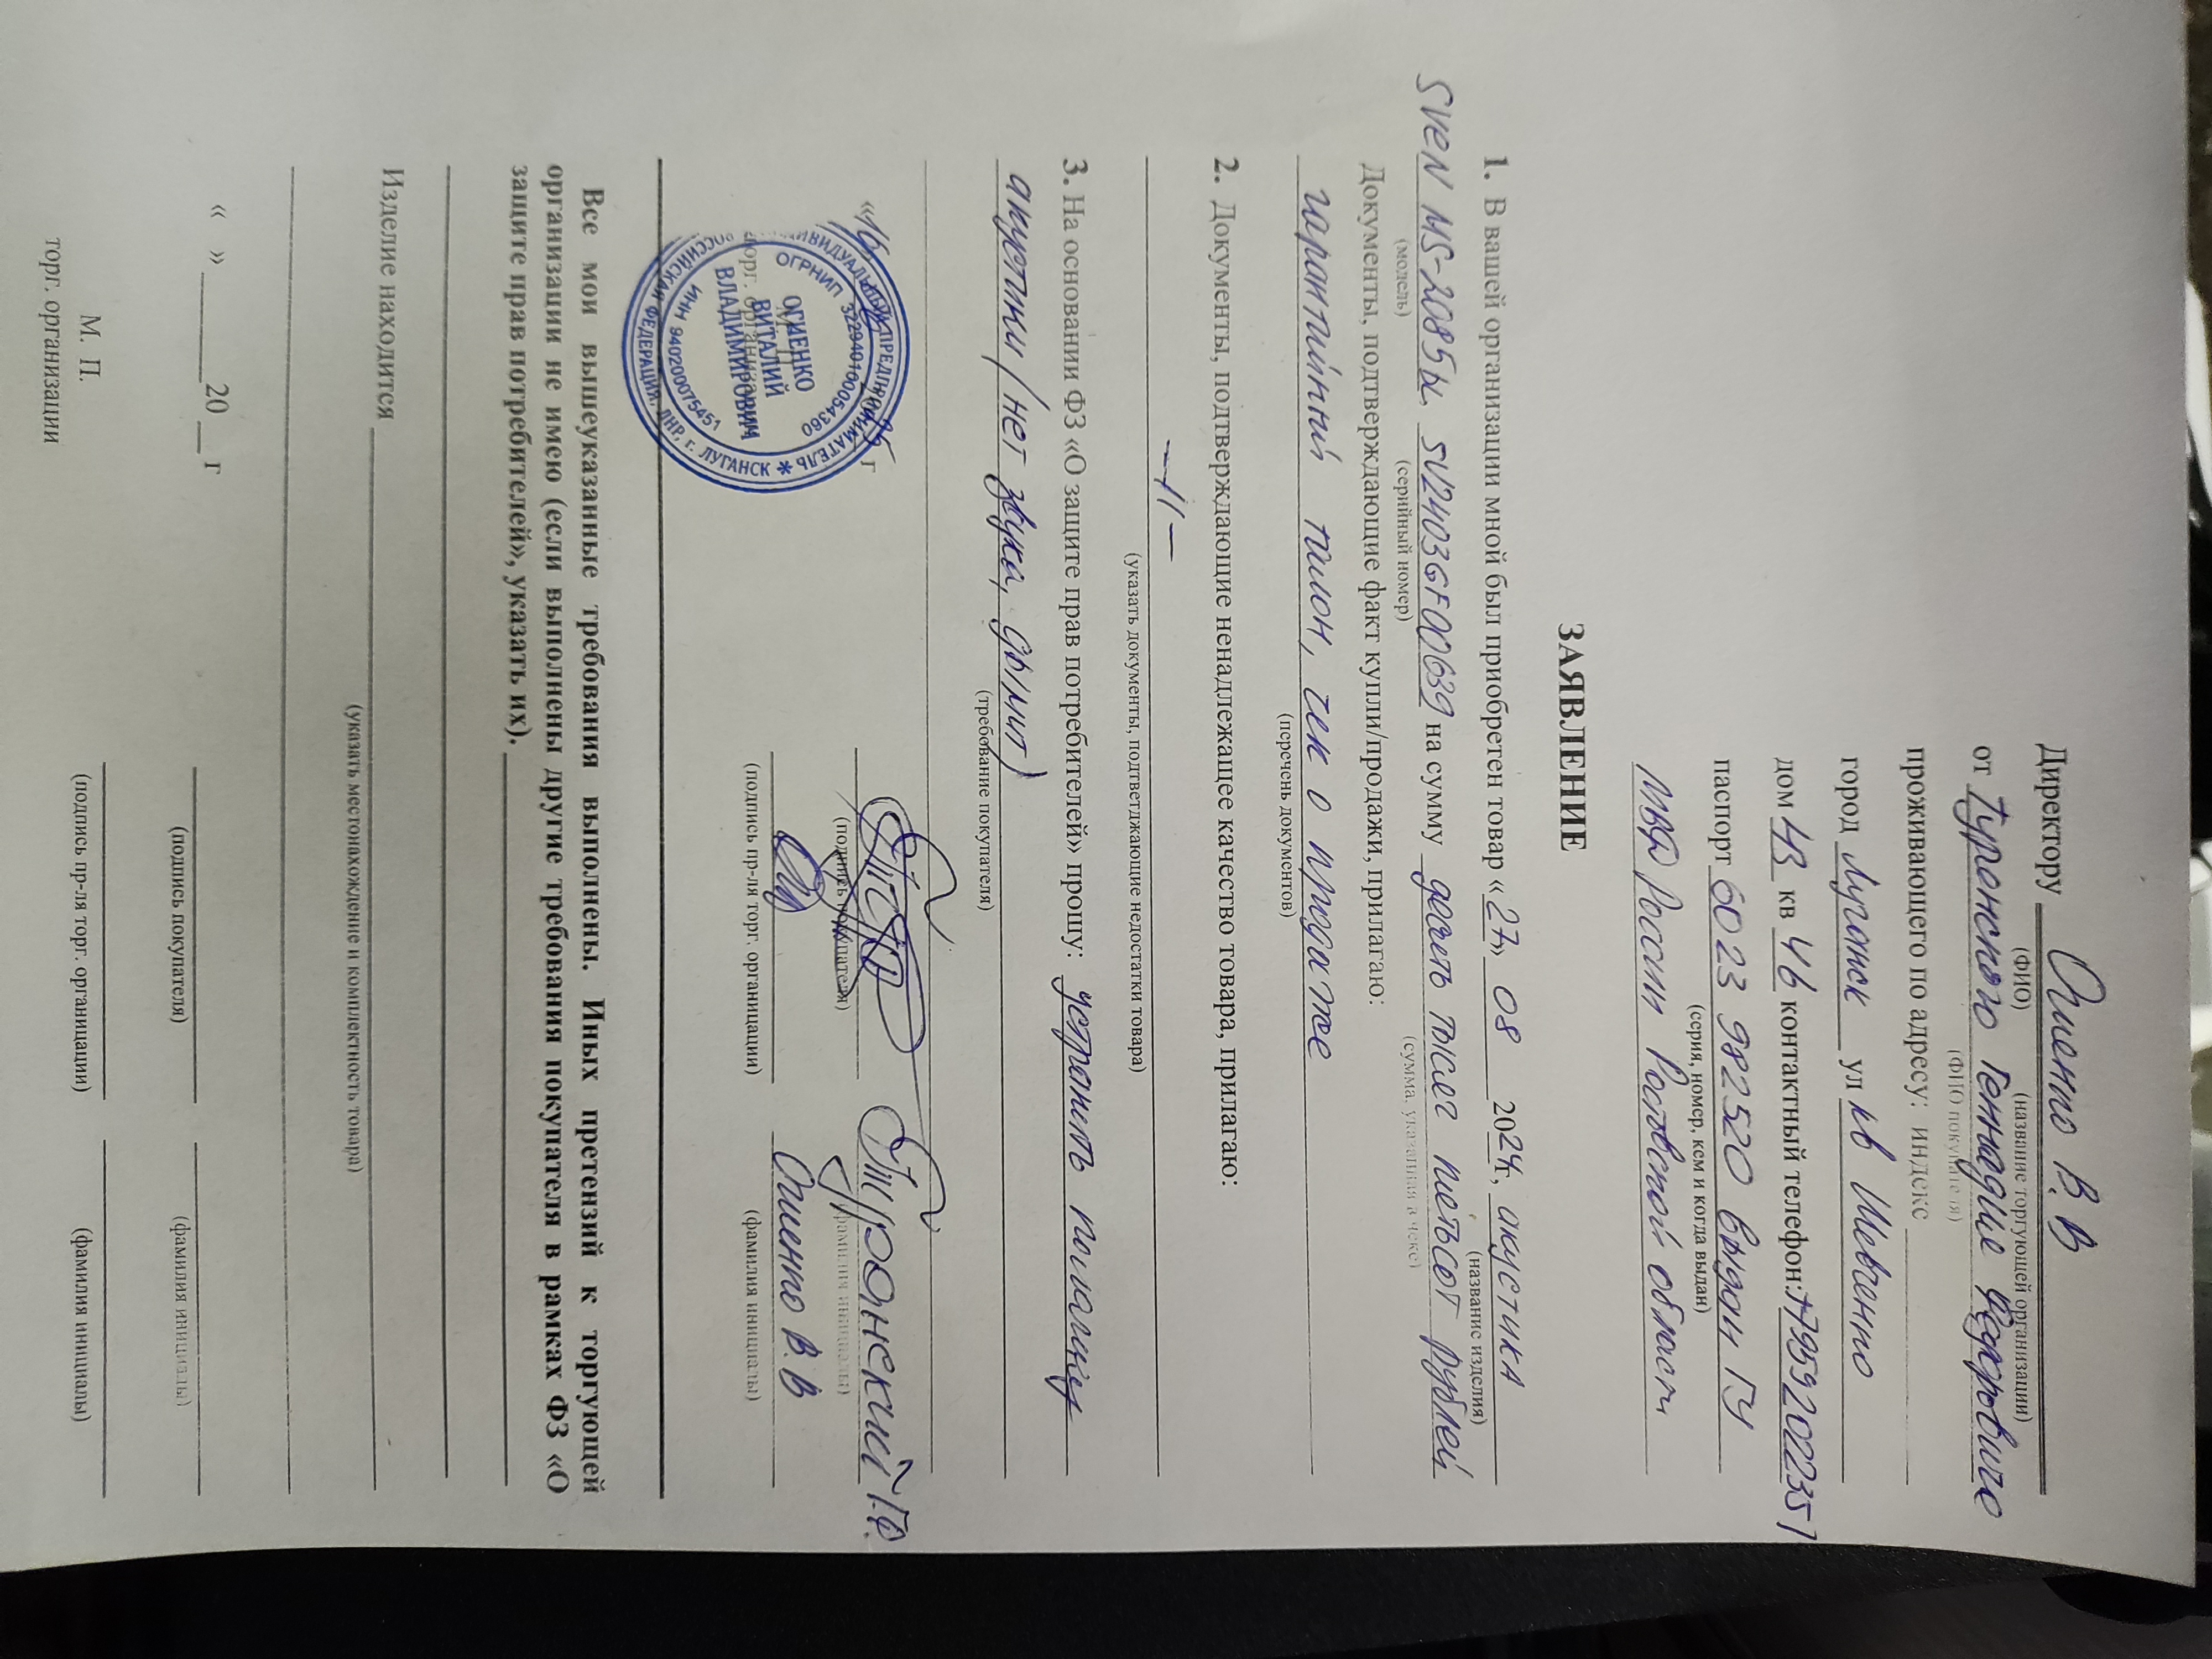 Директору Огиенко В.В
(ФИО) (название торгующей организации)
от Туронского Геннадие Федоровиче
(ФИО покупателя)
проживающего по адресу: индекс
город Луганск ул кв Шевченко
дом 43 кв 46 контактный телефон: +79592022357
паспорт 6023 982520 выдан ГУ
(серия, номер, кем и когда выдан)
МВД России Ростовской област
ЗАЯВЛЕНИЕ
1. В вашей организации мной был приобретен товар «27» 08 2024г, акустика
(название изделия)
SVEN MS-2085ы, SV2403GF00639 на сумму девять тысяч пятьсот рублей
(модель) (серийный номер) (сумма, указанная в чеке)
Документы, подтверждающие факт купли/продажи, прилагаю:
гарантийный талон, чек о продаже
(перечень документов)
2. Документы, подтверждающие ненадлежащее качество товара, прилагаю:
—11—
(указать документы, подтветджающие недостатки товара)
3. На основании ФЗ «О защите прав потребителей» прошу: устранить поломку
акустики/нет звука, дымит)
(требование покупателя)
«16 2025 г Туронский Г.Ф.
(подпись покупателя) (фамилия инициалы)
М П Огиенко В.В
торг. организации (подпись пр-ля торг. органицации) (фамилия инициалы)
ИНДИВИДУАЛЬНЫЙ ПРЕДПРИНИМАТЕЛЬ * РОССИЙСКАЯ ФЕДЕРАЦИЯ, ЛНР, г. ЛУГАНСК *
ОГРНИП 322940100054360
ИНН 940200075451
ОГИЕНКО
ВИТАЛИЙ
ВЛАДИМИРОВИЧ
Все мои вышеуказанные требования выполнены. Иных претензий к торгующей
организации не имею (если выполнены другие требования покупателя в рамках ФЗ «О
защите прав потребителей», указать их).
Изделие находится
(указать местонахождение и комплектность товара)
« » 20 г
(подпись покупателя) (фамилия инициалы)
М. П.
торг. организации (подпись пр-ля торг. органицации) (фамилия инициалы)